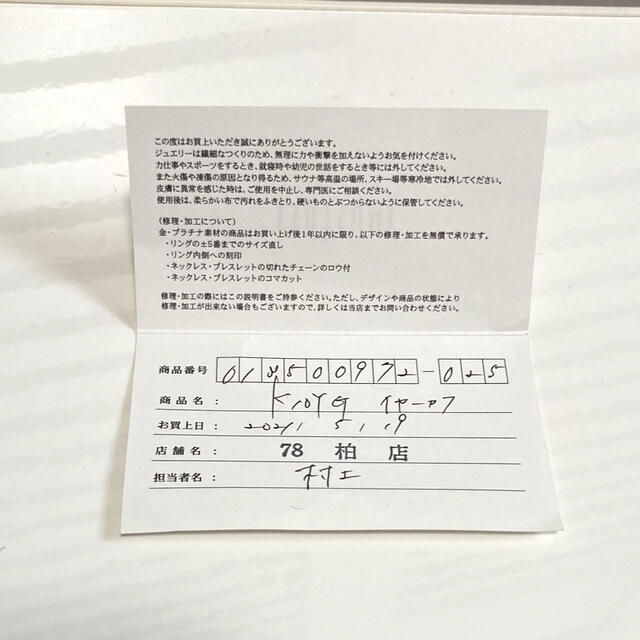 この度はお買上いただき誠にありがとうございます。
ジュエリーは繊細なつくりのため、無理に力や衝撃を加えないようお気を付けください。
力仕事やスポーツをするとき、就寝時や幼児の世話をするとき等には外してください。
また火傷や凍傷の原因となり得るため、サウナ等高温の場所、スキー場等寒冷地では外してください。
皮膚に異常を感じた時は、ご使用を中止し、専門医にご相談ください。
使用後は、柔らかい布で汚れをふきとり、硬いものとぶつからないように保管してください。
〈修理・加工について〉
金・プラチナ素材の商品はお買上げ後1年以内に限り、以下の修理・加工を無償で承ります。
・リングの±5番までのサイズ直し
・リング内側への刻印
・ネックレス・ブレスレットの切れたチェーンのロウ付
・ネックレス・ブレスレットのコマカット
修理・加工の際にはこの説明書をご持参ください。ただし、デザインや商品の状態により
修理・加工が出来ない場合もございますので、詳しくは当店までお問い合わせください。
商品番号 018500972-025
商品名： K10YG イヤーカフ
お買上日： 2021 5 19
店舗名： 78 柏店
担当者名：